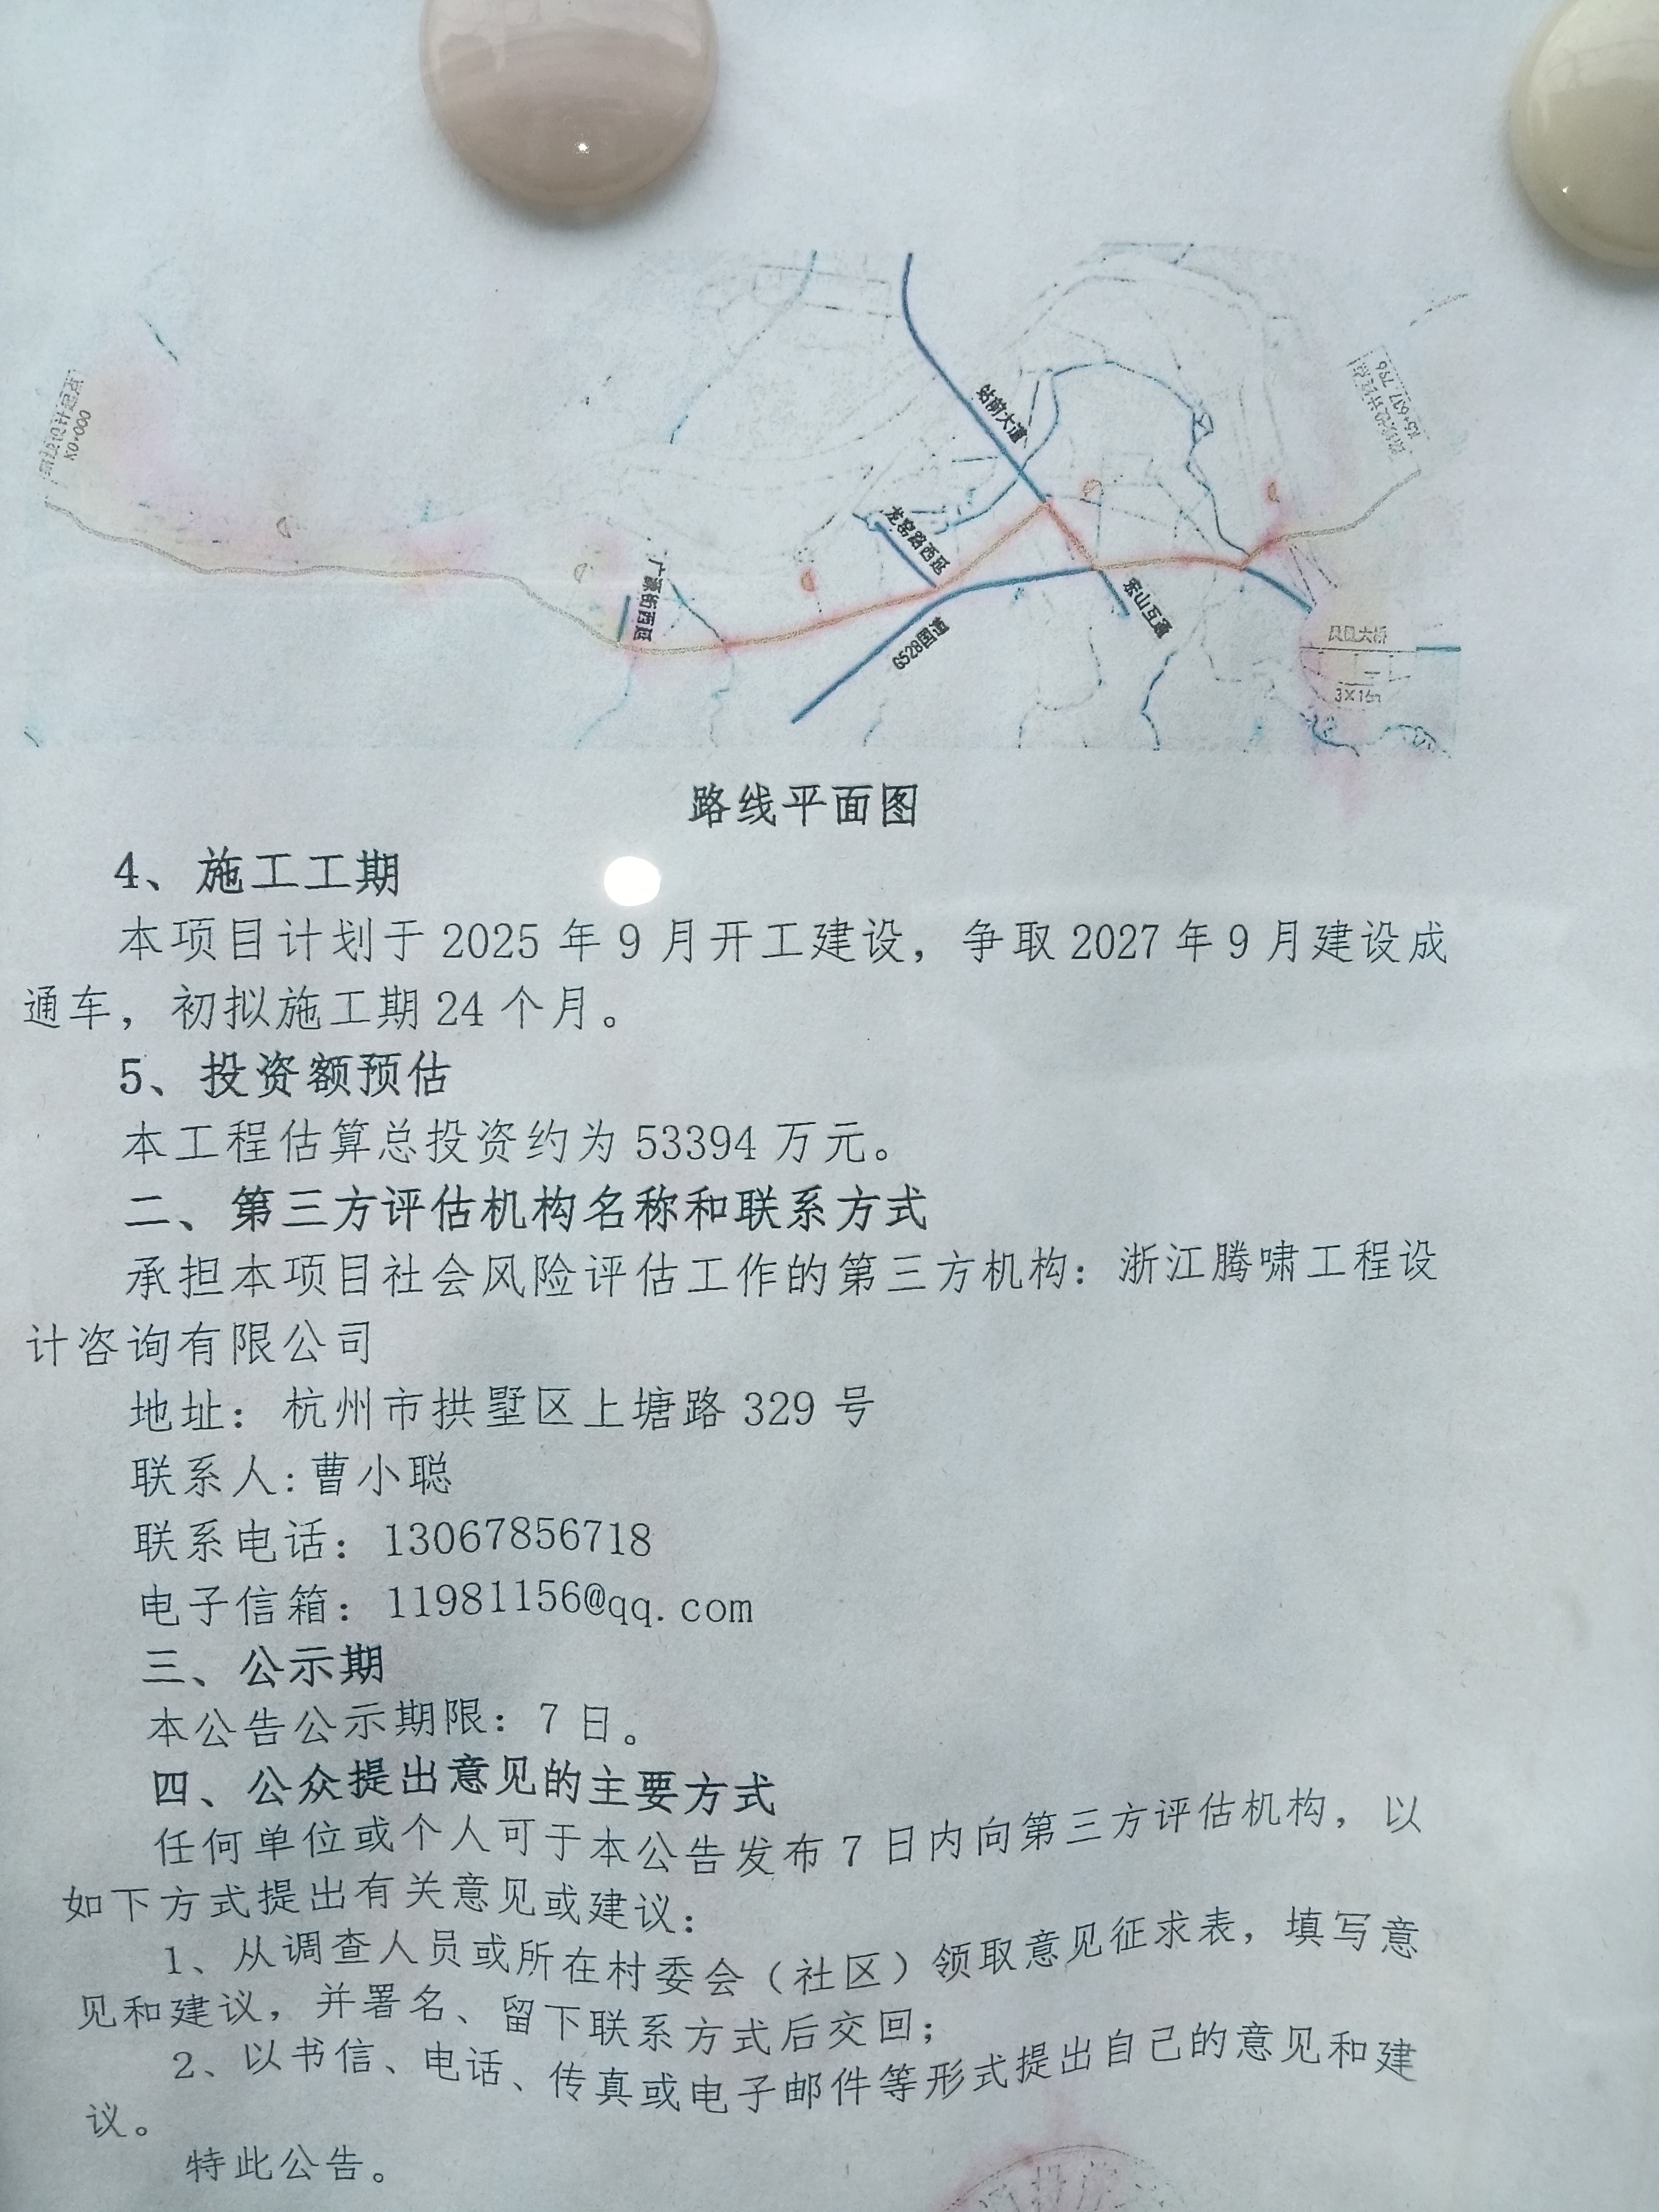 K0+000
站前大道
龙窑路西延
广源街西延
G528国道
宏山互通
凤凰大桥
路线平面图
4、施工工期
本项目计划于 2025 年 9 月开工建设，争取 2027 年 9 月建设成
通车，初拟施工期 24 个月。
5、投资额预估
本工程估算总投资约为 53394 万元。
二、第三方评估机构名称和联系方式
承担本项目社会风险评估工作的第三方机构：浙江腾啸工程设
计咨询有限公司
地址：杭州市拱墅区上塘路 329 号
联系人：曹小聪
联系电话：13067856718
电子信箱：11981156@qq.com
三、公示期
本公告公示期限：7 日。
四、公众提出意见的主要方式
任何单位或个人可于本公告发布 7 日内向第三方评估机构，以
如下方式提出有关意见或建议：
1、从调查人员或所在村委会（社区）领取意见征求表，填写意
见和建议，并署名、留下联系方式后交回；
2、以书信、电话、传真或电子邮件等形式提出自己的意见和建
议。
特此公告。